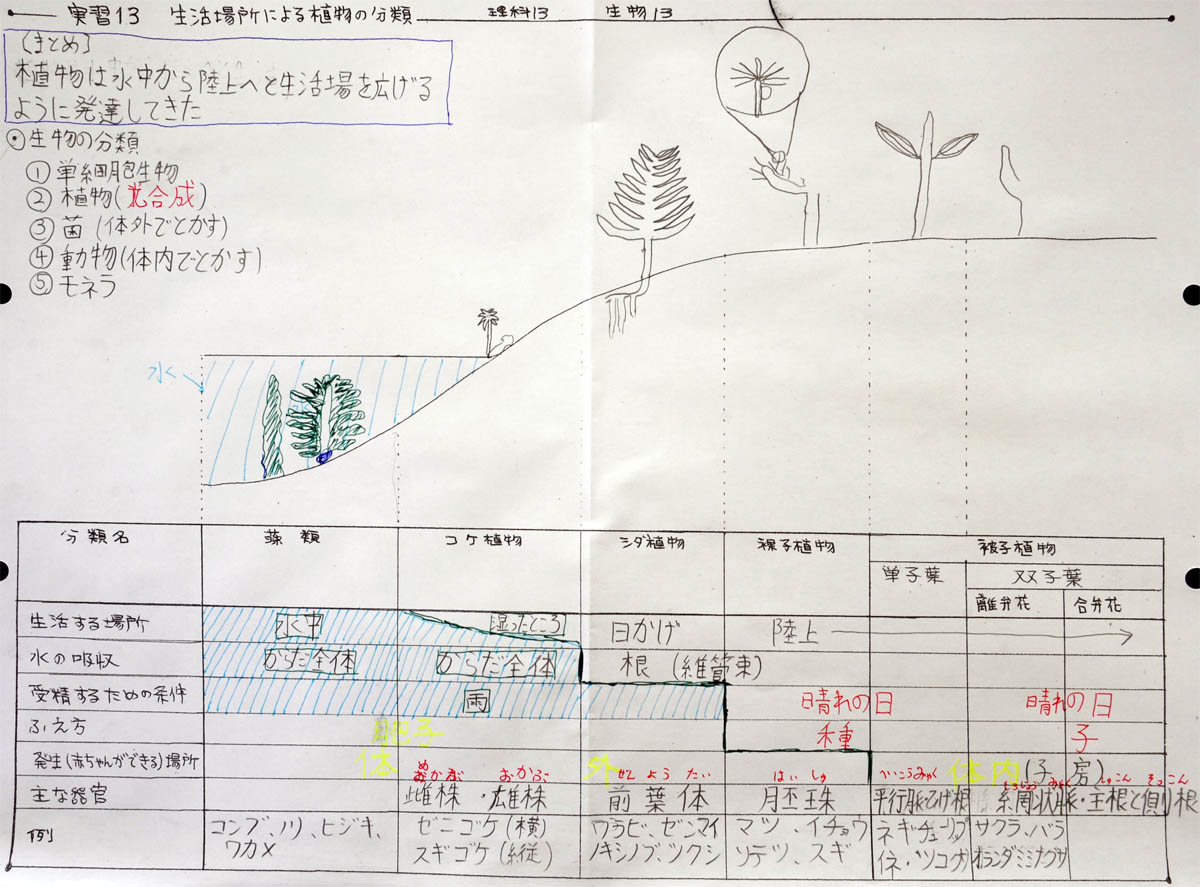 実習13 生活場所による植物の分類 理科13 生物13
(まとめ)
植物は水中から陸上へと生活場を広げる
ように発達してきた
⊙生物の分類
①単細胞生物
②植物(光合成)
③菌(体外でとかす)
④動物(体内でとかす)
⑤モネラ
水
分類名 藻類 コケ植物 シダ植物 裸子植物 被子植物
単子葉 双子葉
離弁花 合弁花
生活する場所 水中 湿ったところ 日かげ 陸上
水の吸収 からだ全体 からだ全体 根(維管束)
受精するための条件 雨 晴れの日 晴れの日
ふえ方 胞子 種 子
発生(赤ちゃんができる)場所 体 外 体内(子房)
めかぶ おかぶ ぜんようたい はいしゅ へいこうみゃく しゅこん そっこん
主な器官 雌株・雄株 前葉体 胚珠 平行脈とひげ根 網状脈・主根と側根
例 コンブ、ノリ、ヒジキ、 ゼニゴケ(横) ワラビ、ゼンマイ マツ、イチョウ ネギチューリップ サクラ、バラ
ワカメ スギゴケ(縦) ノキシノブ、ツクシ ソテツ、スギ イネ・ツユクサ オランダミミナグサ